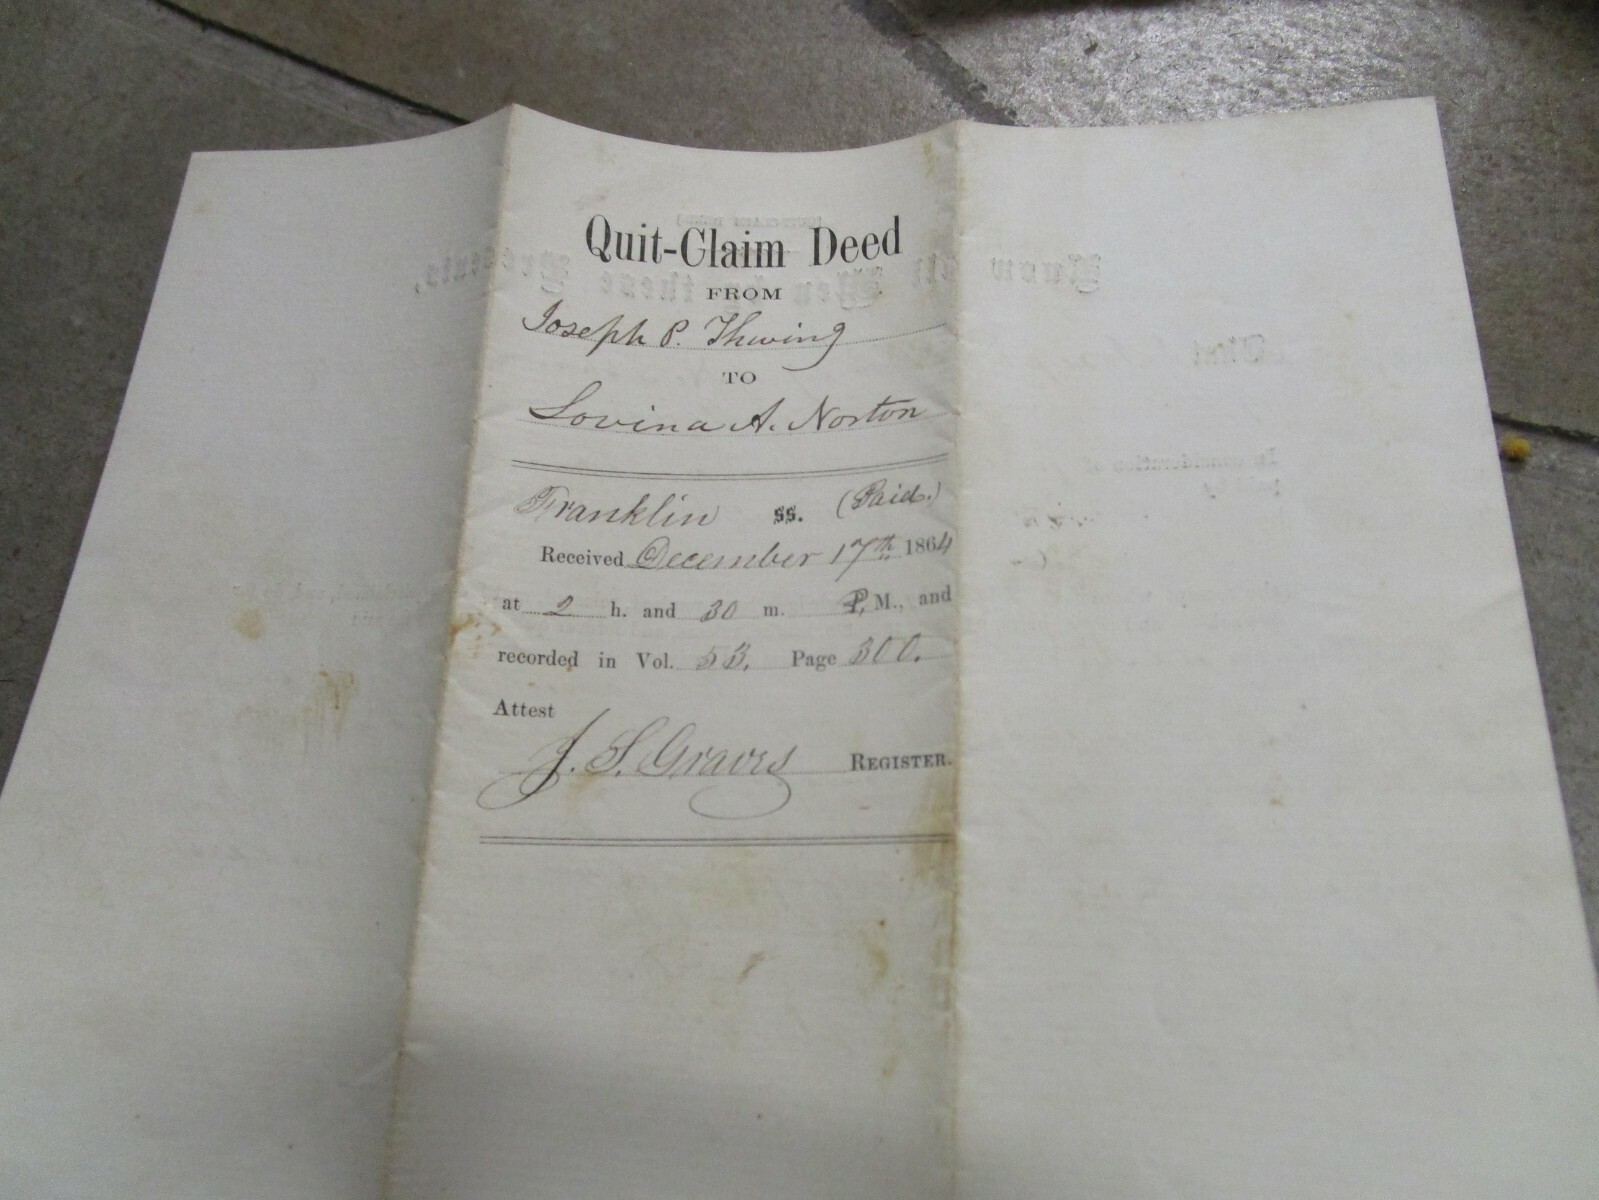 Quit-Claim Deed
FROM
Joseph P. Thwing
TO
Lovina A. Norton
Franklin ss. (Paid.)
Received December 17th 1864
at 2 h. and 30 m. P.M., and
recorded in Vol. 53, Page 300.
Attest
J. S. Graves REGISTER.